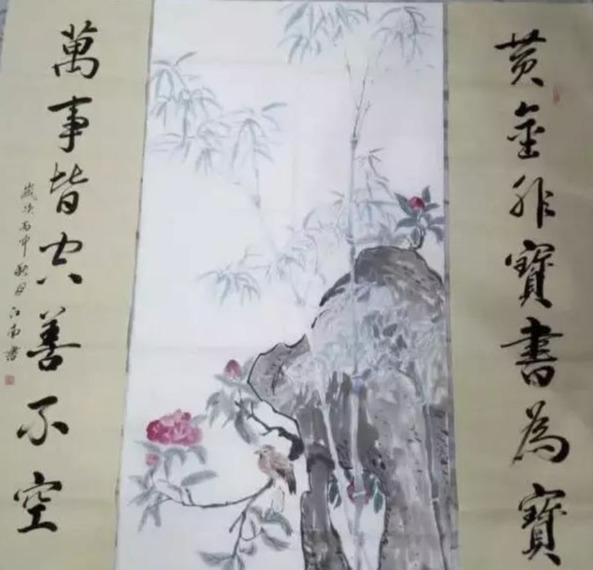 黄金非寶書為寶
萬事皆空善不空
歲次丙申秋月江南書